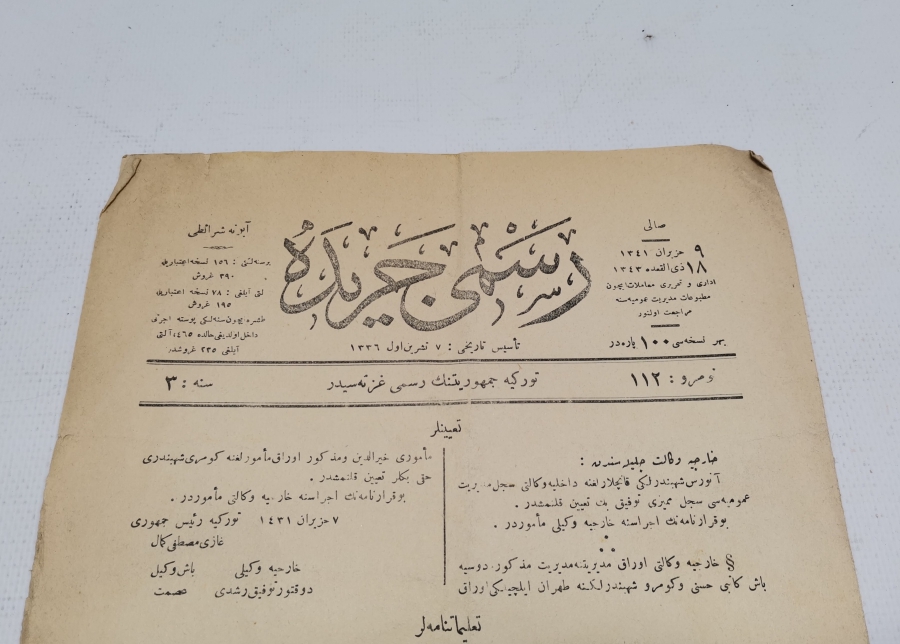 صالی
٩ حزیران ١٣٤١
١٨ ذی القعده ١٣٤٣
اداری و تحریری معاملات ایچون
مطبوعات مدیریت عمومیه‌سنه
مراجعت اولنور
بهر نسخه‌سی ١٠٠ پاره‌در
رسمی جریده
تأسیس تاریخی : ٧ تشرین اول ١٣٣٦
آبونه شرائطی
برسنه‌لكی : ١٥٦ نسخه اعتباریله
٣٩٠ غروش
التی آیلغی : ٧٨ نسخه اعتباریله
١٩٥ غروش
طشره ایچون سنه‌لكی پوسته اجرتی
داخل اولدیغی حالده ٤٦٥، آلتی
آیلغی ٢٣٥ غروشدر
نومرو : ١١٢
توركیه جمهوریتنك رسمی غزته‌سیدر
سنه : ٣
تعیینلر
خارجیه وكالت جلیله‌سندن :
آنورس شهبندرلكی قانچلارلغنه داخلیه وكالتی سجل مدیریت
عمومیه‌سی سجل ممیزی توفیق بك تعیین قلنمشدر .
بوقرارنامه‌نك اجراسنه خارجیه وكیلی مأموردر .
§ خارجیه وكالتی اوراق مدیریتنه مدیریت مذكور دوسیه
باش كاتبی حسنی وكومرو شهبندرلكنه طهران ایلچیلكی اوراق
مأموری خیرالدین ومذكور اوراق مأمورلغنه كومری شهبندری
حقی بكلر تعیین قلنمشدر .
بوقرارنامه‌نك اجراسنه خارجیه وكالتی مأموردر .
٧ حزیران ١٤٣١ توركیه رئیس جمهوری
غازی مصطفی كمال
خارجیه وكیلی باش وكیل
دوقتور توفیق رشدی عصمت
تعلیماتنامه‌لر